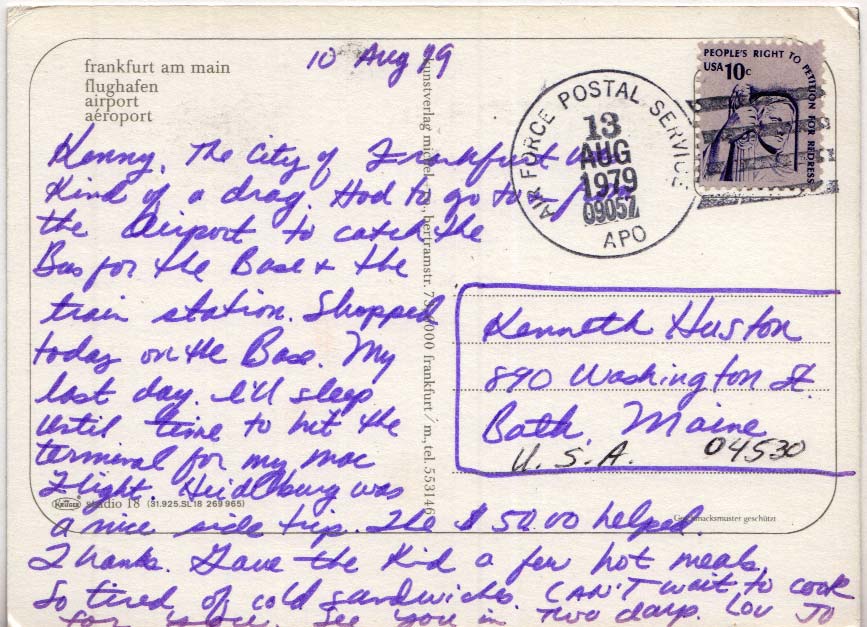 10 Aug 79
frankfurt am main
flughafen
airport
aéroport
Kenny, The City of Frankfurt was
Kind of a drag. Had to go to + from
the Airport to catch the
Bus for the Base + the
train station. Shopped
today on the Base. My
last day. I'll sleep
until time to hit the
terminal for my mac
Flight. Heidlburg was
a nice side trip. The $50.00 helped.
Thanks. Gave the Kid a few hot meals.
So tired of cold sandwiches. CAN'T wait to cook
for you. See you in Two days. Lou Jo
KRÜGER studio 18 (31.925,SL18 269965)
kunstverlag michel + bertramstr. 75 6000 frankfurt/m., tel. 553146
AIR FORCE POSTAL SERVICE
13
AUG
1979
0905Z
APO
PEOPLE'S RIGHT TO PETITION FOR REDRESS
USA 10c
Kenneth Huston
890 Washington St.
Bath, Maine
U.S.A. 04530
Geschmacksmuster geschützt